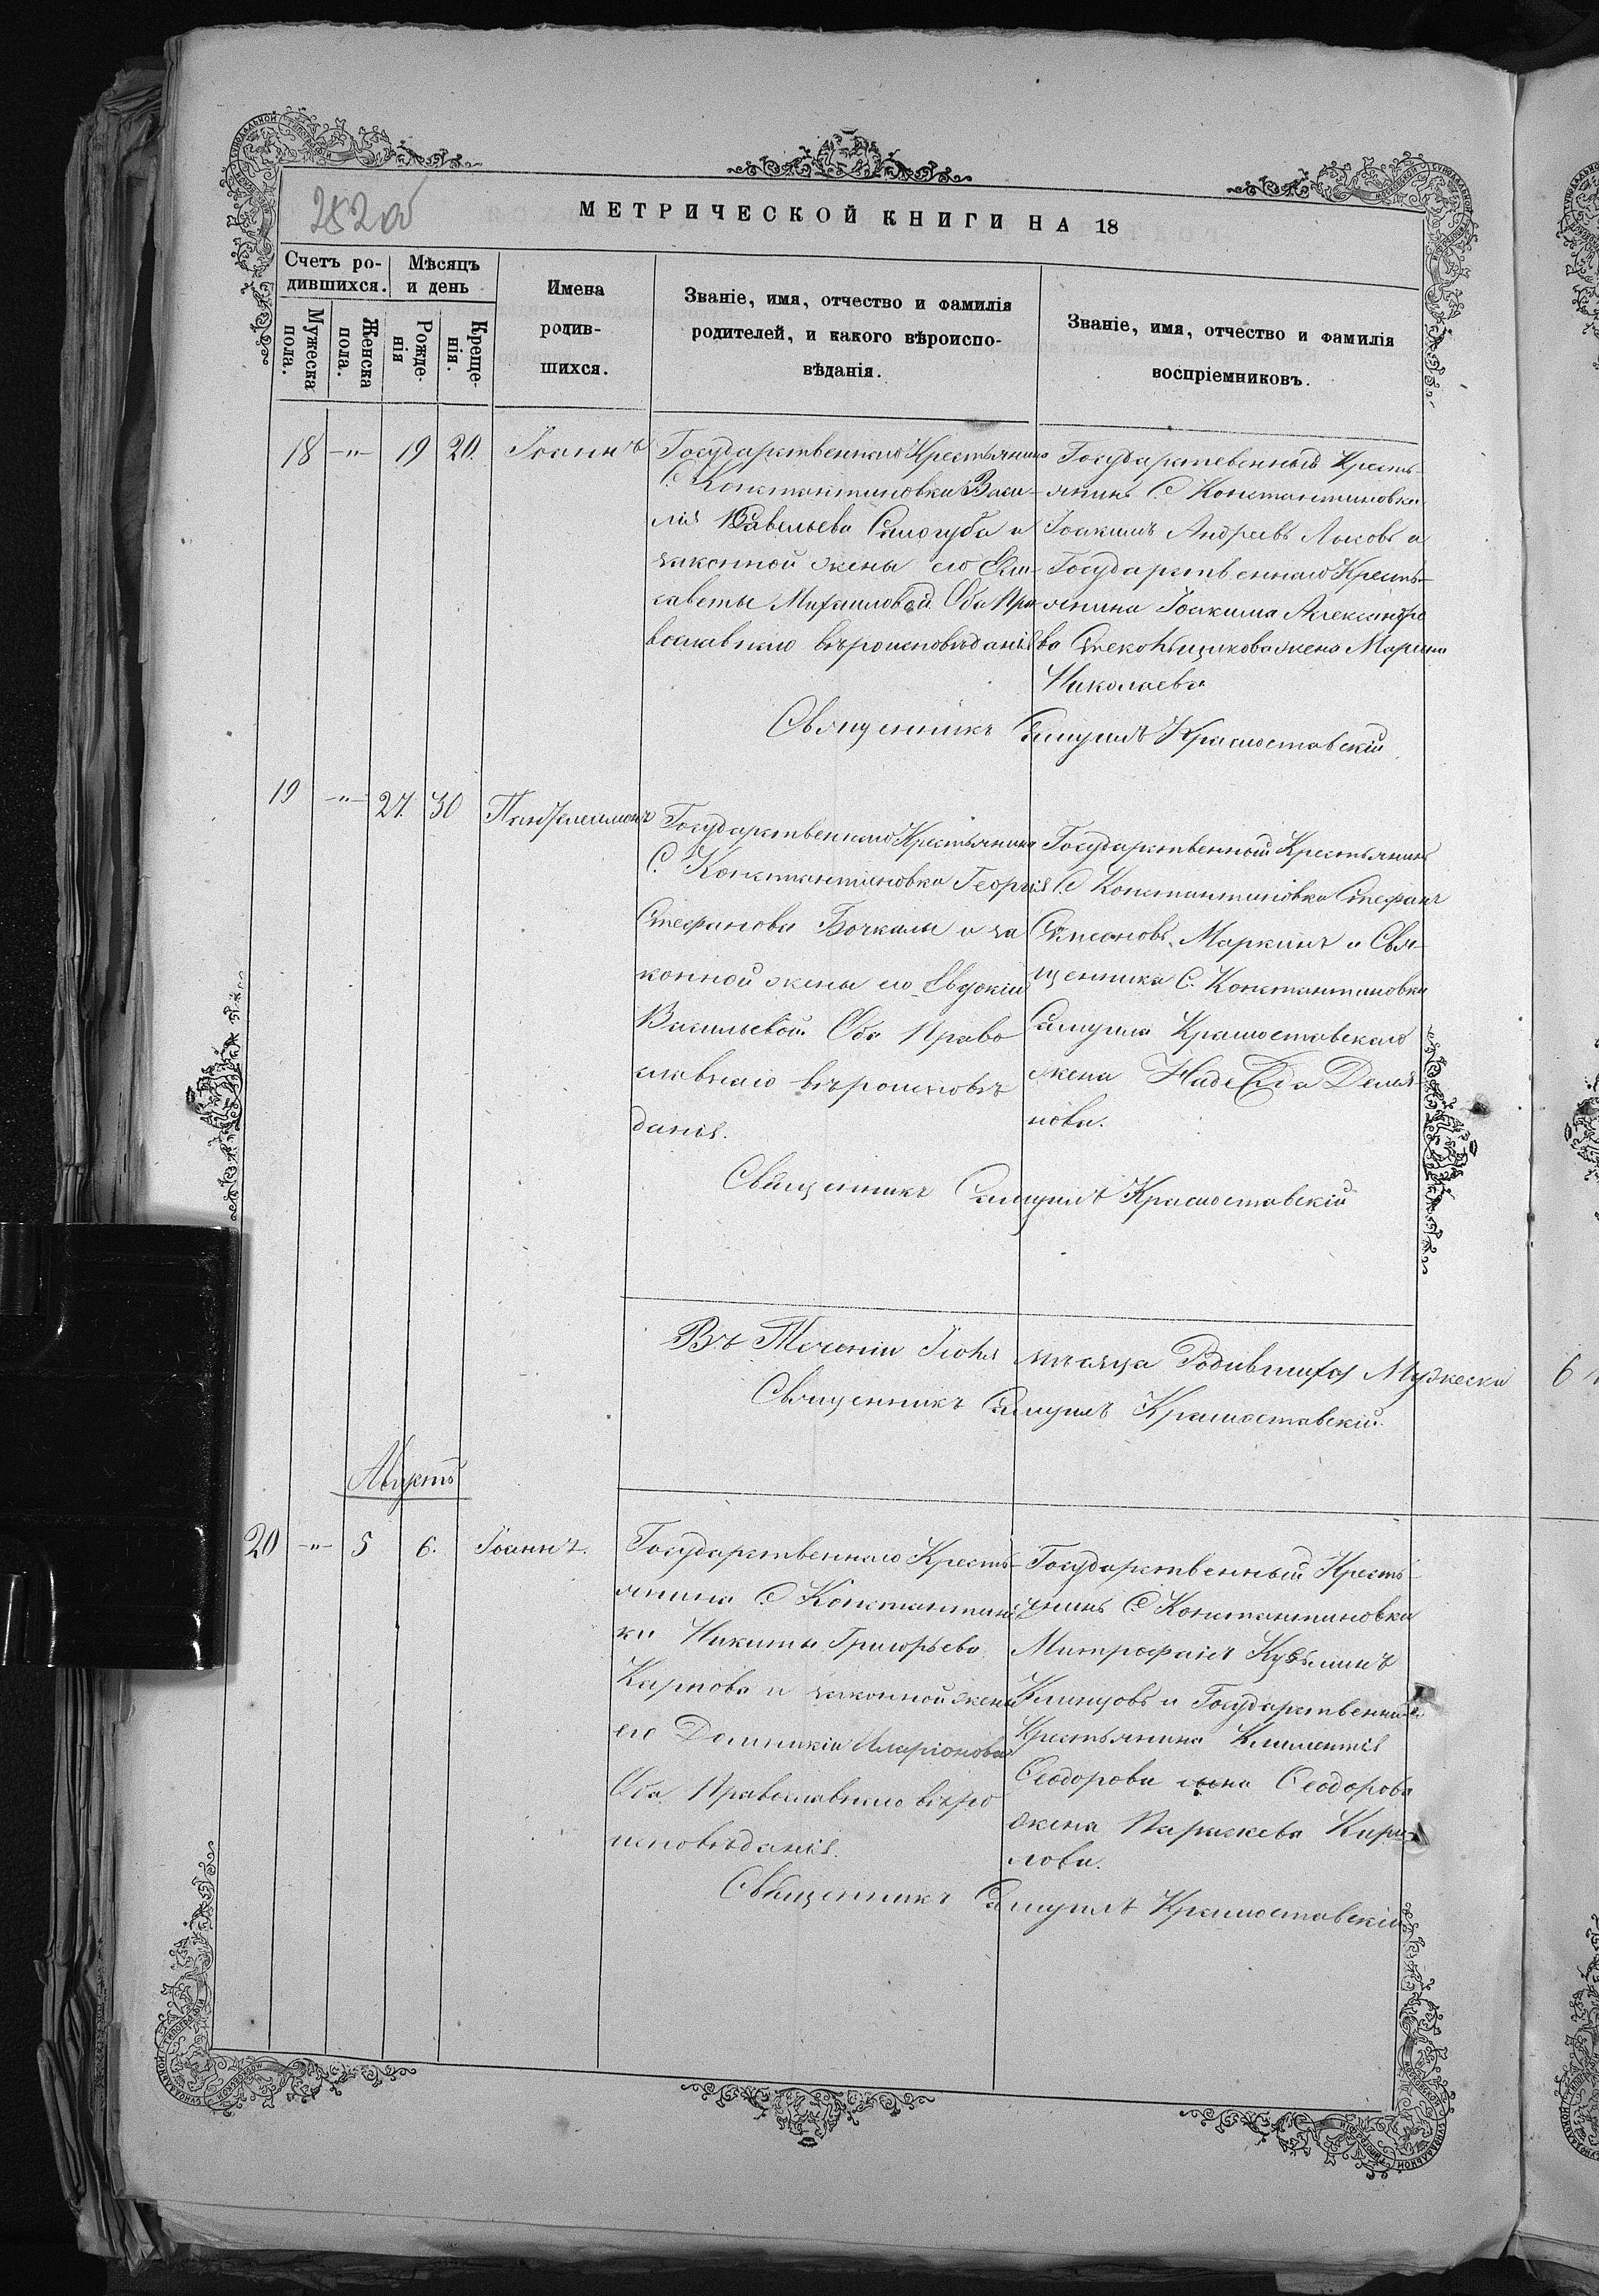 252об
МЕТРИЧЕСКОЙ КНИГИ НА 18
Счетъ ро-
дившихся.
Мужеска
пола.
Женска
пола.
Мѣсяцъ
и день
Рожде-
нія
Креще-
нія.
Имена
родив-
шихся.
Званіе, имя, отчество и фамилія
родителей, и какого вѣроиспо-
вѣданія.
Званіе, имя, отчество и фамилія
воспріемниковъ.
18 -"- 19 20. Іоаннъ
Государственнаго Крестьянина
С. Константиновки Васи-
лія Савельева Самогуба и
законной жены его Ели-
саветы Михаиловой. Оба Пра-
вославнаго вѣроисповѣданія
Государственный Кресть-
янинъ С. Константиновки
Іоакимъ Андреевъ Лысовъ и
Государственнаго Кресть-
янина Іоакима Александро
ва Стекольщикова жена Марина
Николаева
Священникъ Самуилъ Красноставскій
19 -"- 27. 30 Пантелеимонъ
Государственнаго Крестьянина
С. Константиновки Георгія
Стефанова Бочкалы и за
конной жены его Евдокіи
Васильевой. Оба Право
славнаго вѣроисповѣ
данія.
Государственной Крестьянинъ
С. Константиновки Стефанъ
Симеоновъ Маркинъ и Свя-
щенника С. Константиновки
Самуила Красноставскаго
жена Надежда Демья
нова.
Священникъ Самуилъ Красноставскій
Въ Теченіи Іюля мѣсяца Родившихся Мужеска 6
Священникъ Самуилъ Красноставскій.
Августъ
20 -"- 5 6. Іоаннъ.
Государственнаго Кресть-
янина С. Константинов
ки Никиты Григорьева
Карпова и законной жены
его Домникіи Иларіоновой
Оба Православнаго вѣро
исповѣданія.
Государственный Кресть-
янинъ С. Константиновки
Митрофанъ Кузьминъ
Клинцовъ и Государственнаго
Крестьянина Климентія
Ѳеодорова сына Ѳеодорова
жена Параскева Кири-
лова.
Священникъ Самуилъ Красноставскій